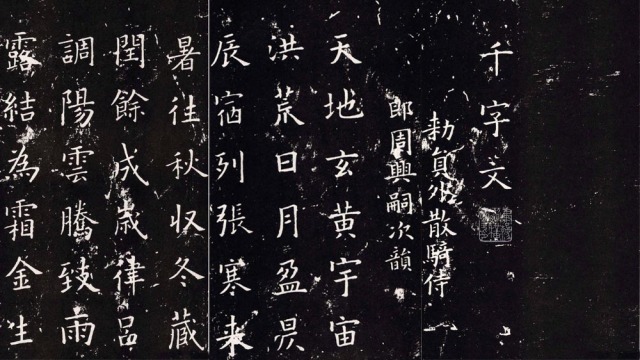 千字文
勑員外散騎侍
郎周興嗣次韻
天地玄黄宇宙
洪荒日月盈昃
辰宿列張寒来
暑往秋収冬藏
閏餘成歳律吕
調陽雲騰致雨
露結為霜金生